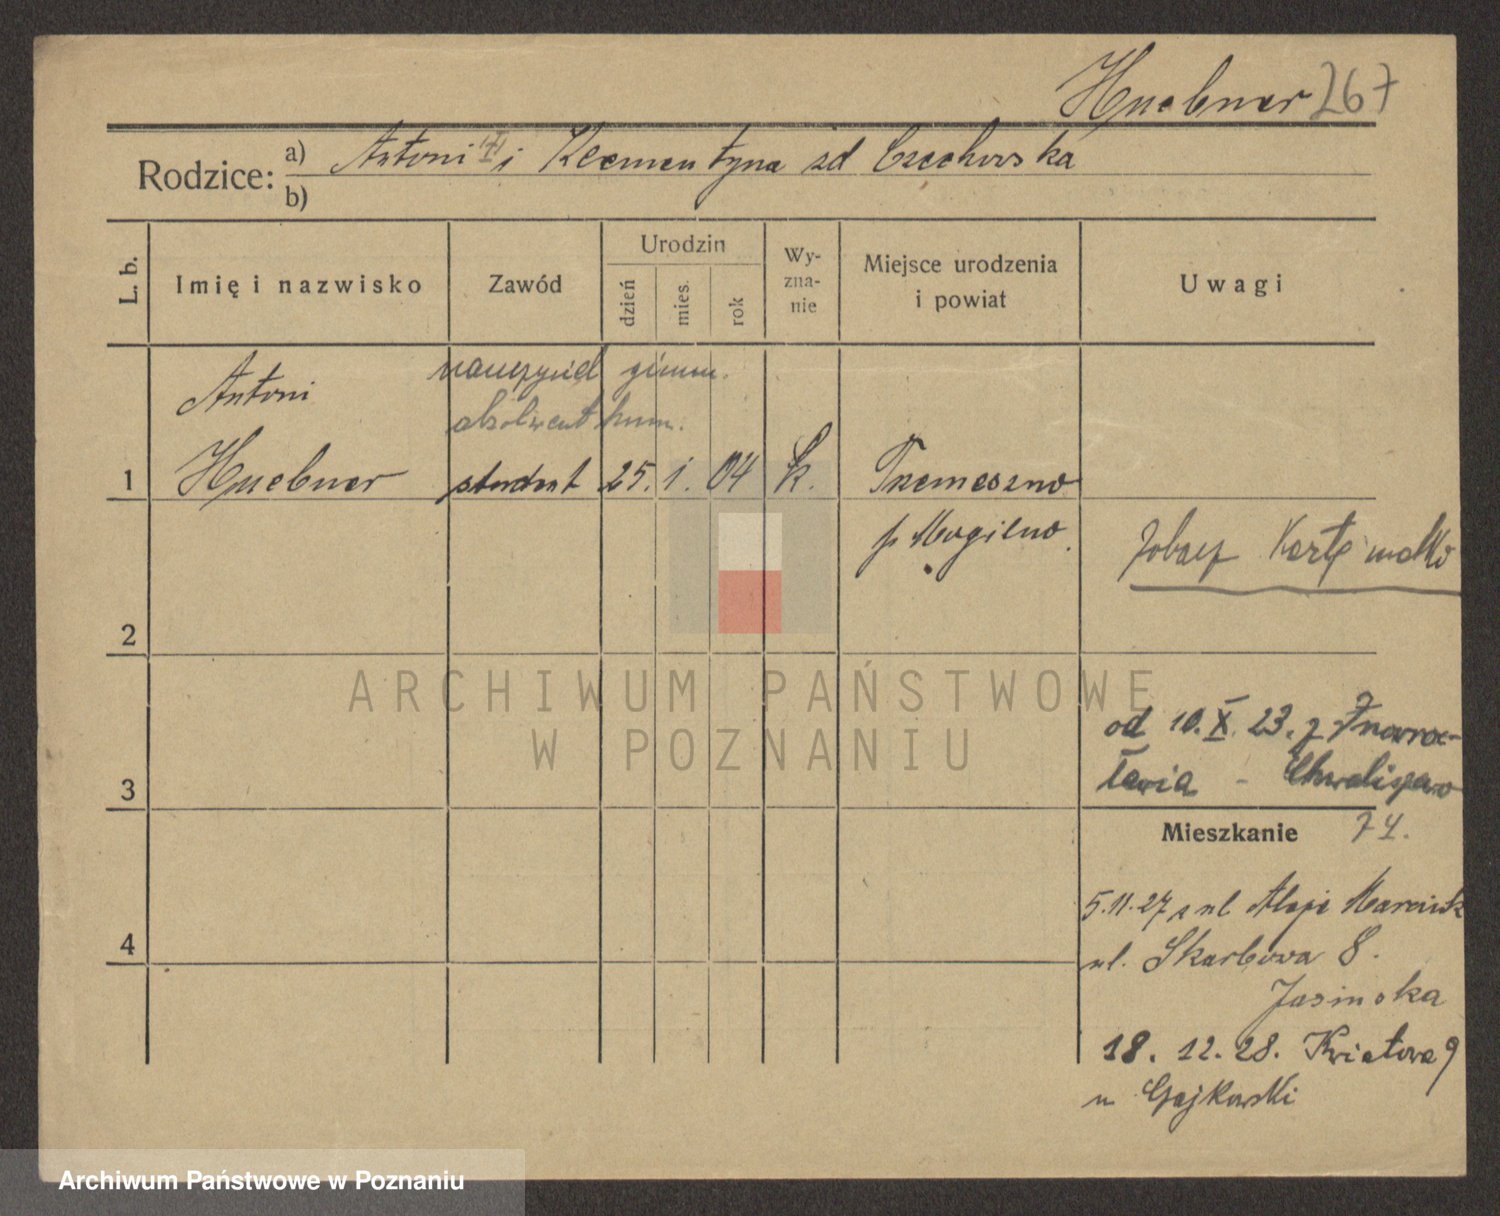 Huebner 267
Rodzice: a) Antoni (†) i Klementyna zd Czechowska
b)
L. b.
Imię i nazwisko
Zawód
Urodzin
dzień
mies.
rok
Wy-
zna-
nie
Miejsce urodzenia
i powiat
Uwagi
nauczyciel gimn.
Antoni
absolwent hum.
1 Huebner student 25. 1. 04 k. Trzemeszno
p Mogilno.
Zobacz Kartę matki
2
ARCHIWUM PAŃSTWOWE
W POZNANIU
od 10. X. 23. z Inowro-
cławia - Chwaliszewo
3
74.
Mieszkanie
5.11.27 Aleje Marcink
4
ul. Skarbowa 8.
Jasinska
18. 12. 28. Kwiatowa 9
u Gajkowski
Archiwum Państwowe w Poznaniu